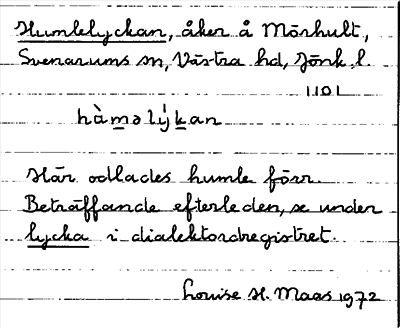 Humlelyckan, åker å Mörhult,
Svenarums sn, Västra hd, Jönk. l.
1101
hàməlýkan
Här odlades humle förr.
Beträffande efterleden, se under
lycka i dialektordregistret.
Louise H. Maas 1972